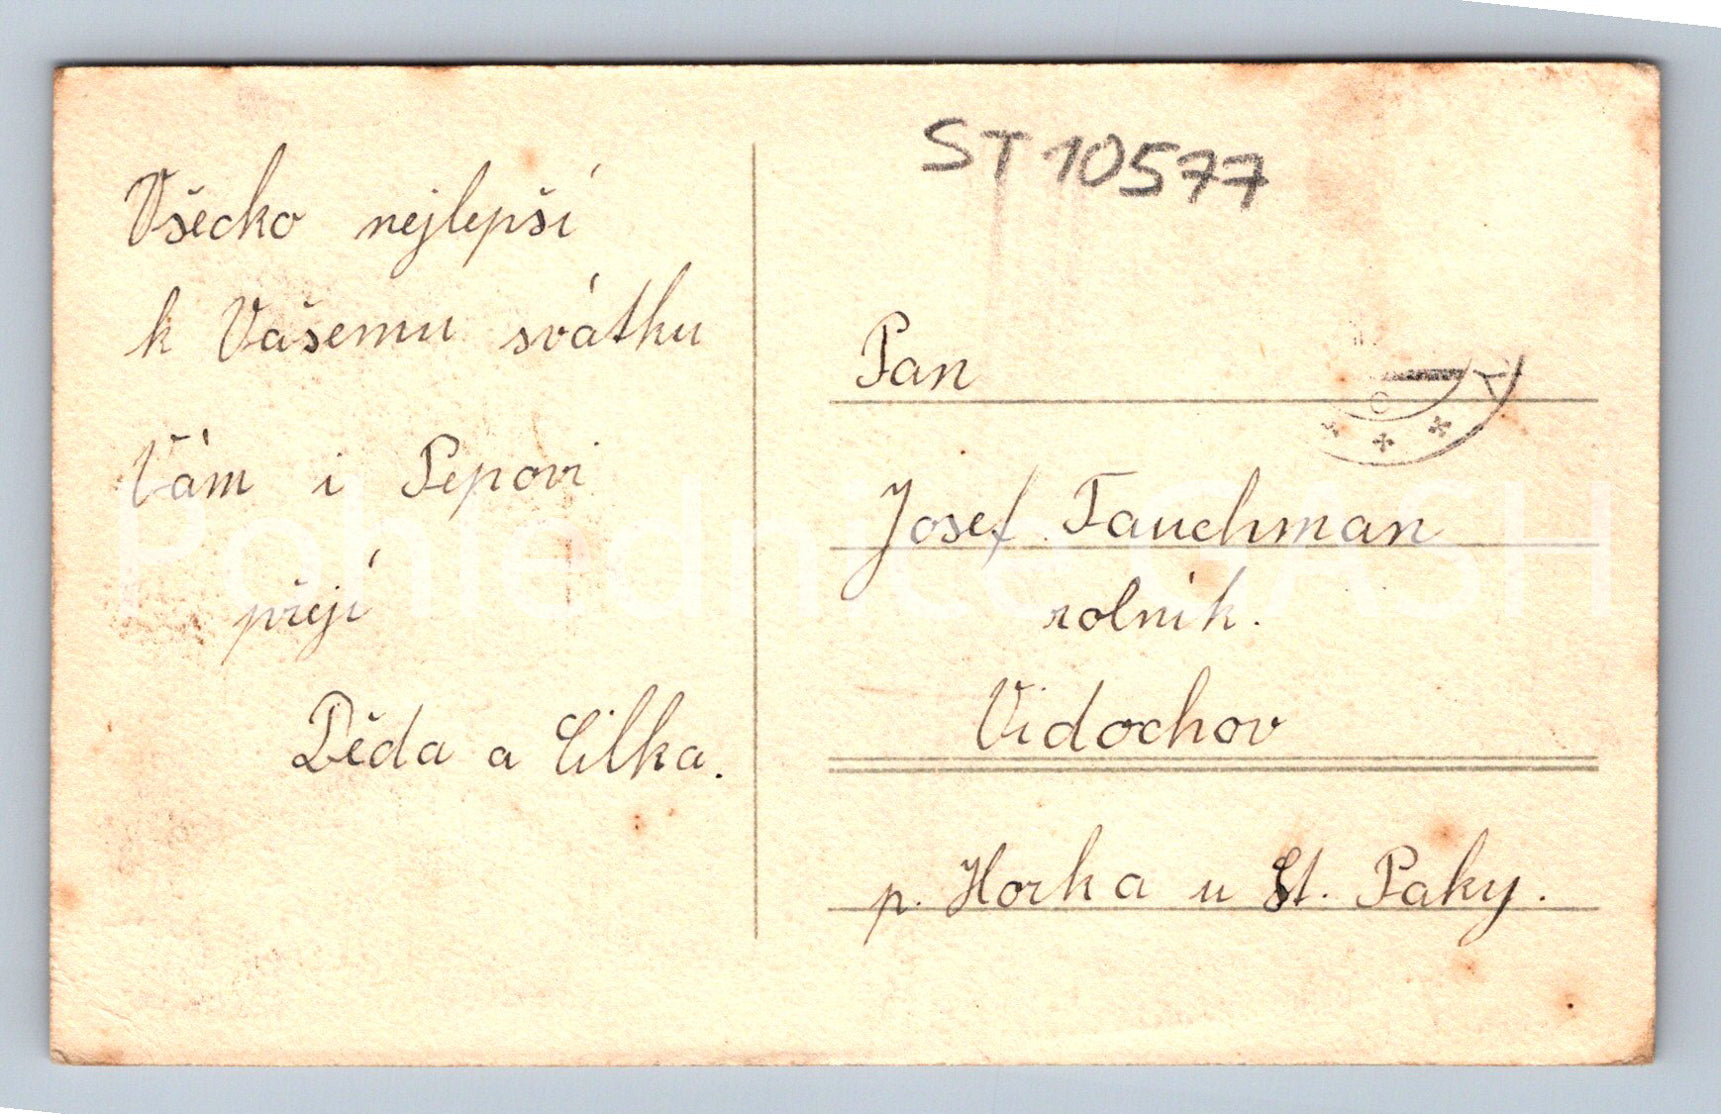 Všecko nejlepší
k Vašemu svátku
Vám i Pepovi
přejí
Děda a Cilka.
ST 10577
Pan
Josef Fauchman
rolník.
Vidochov
p. Horka u St. Paky.
Pohlednice SASH